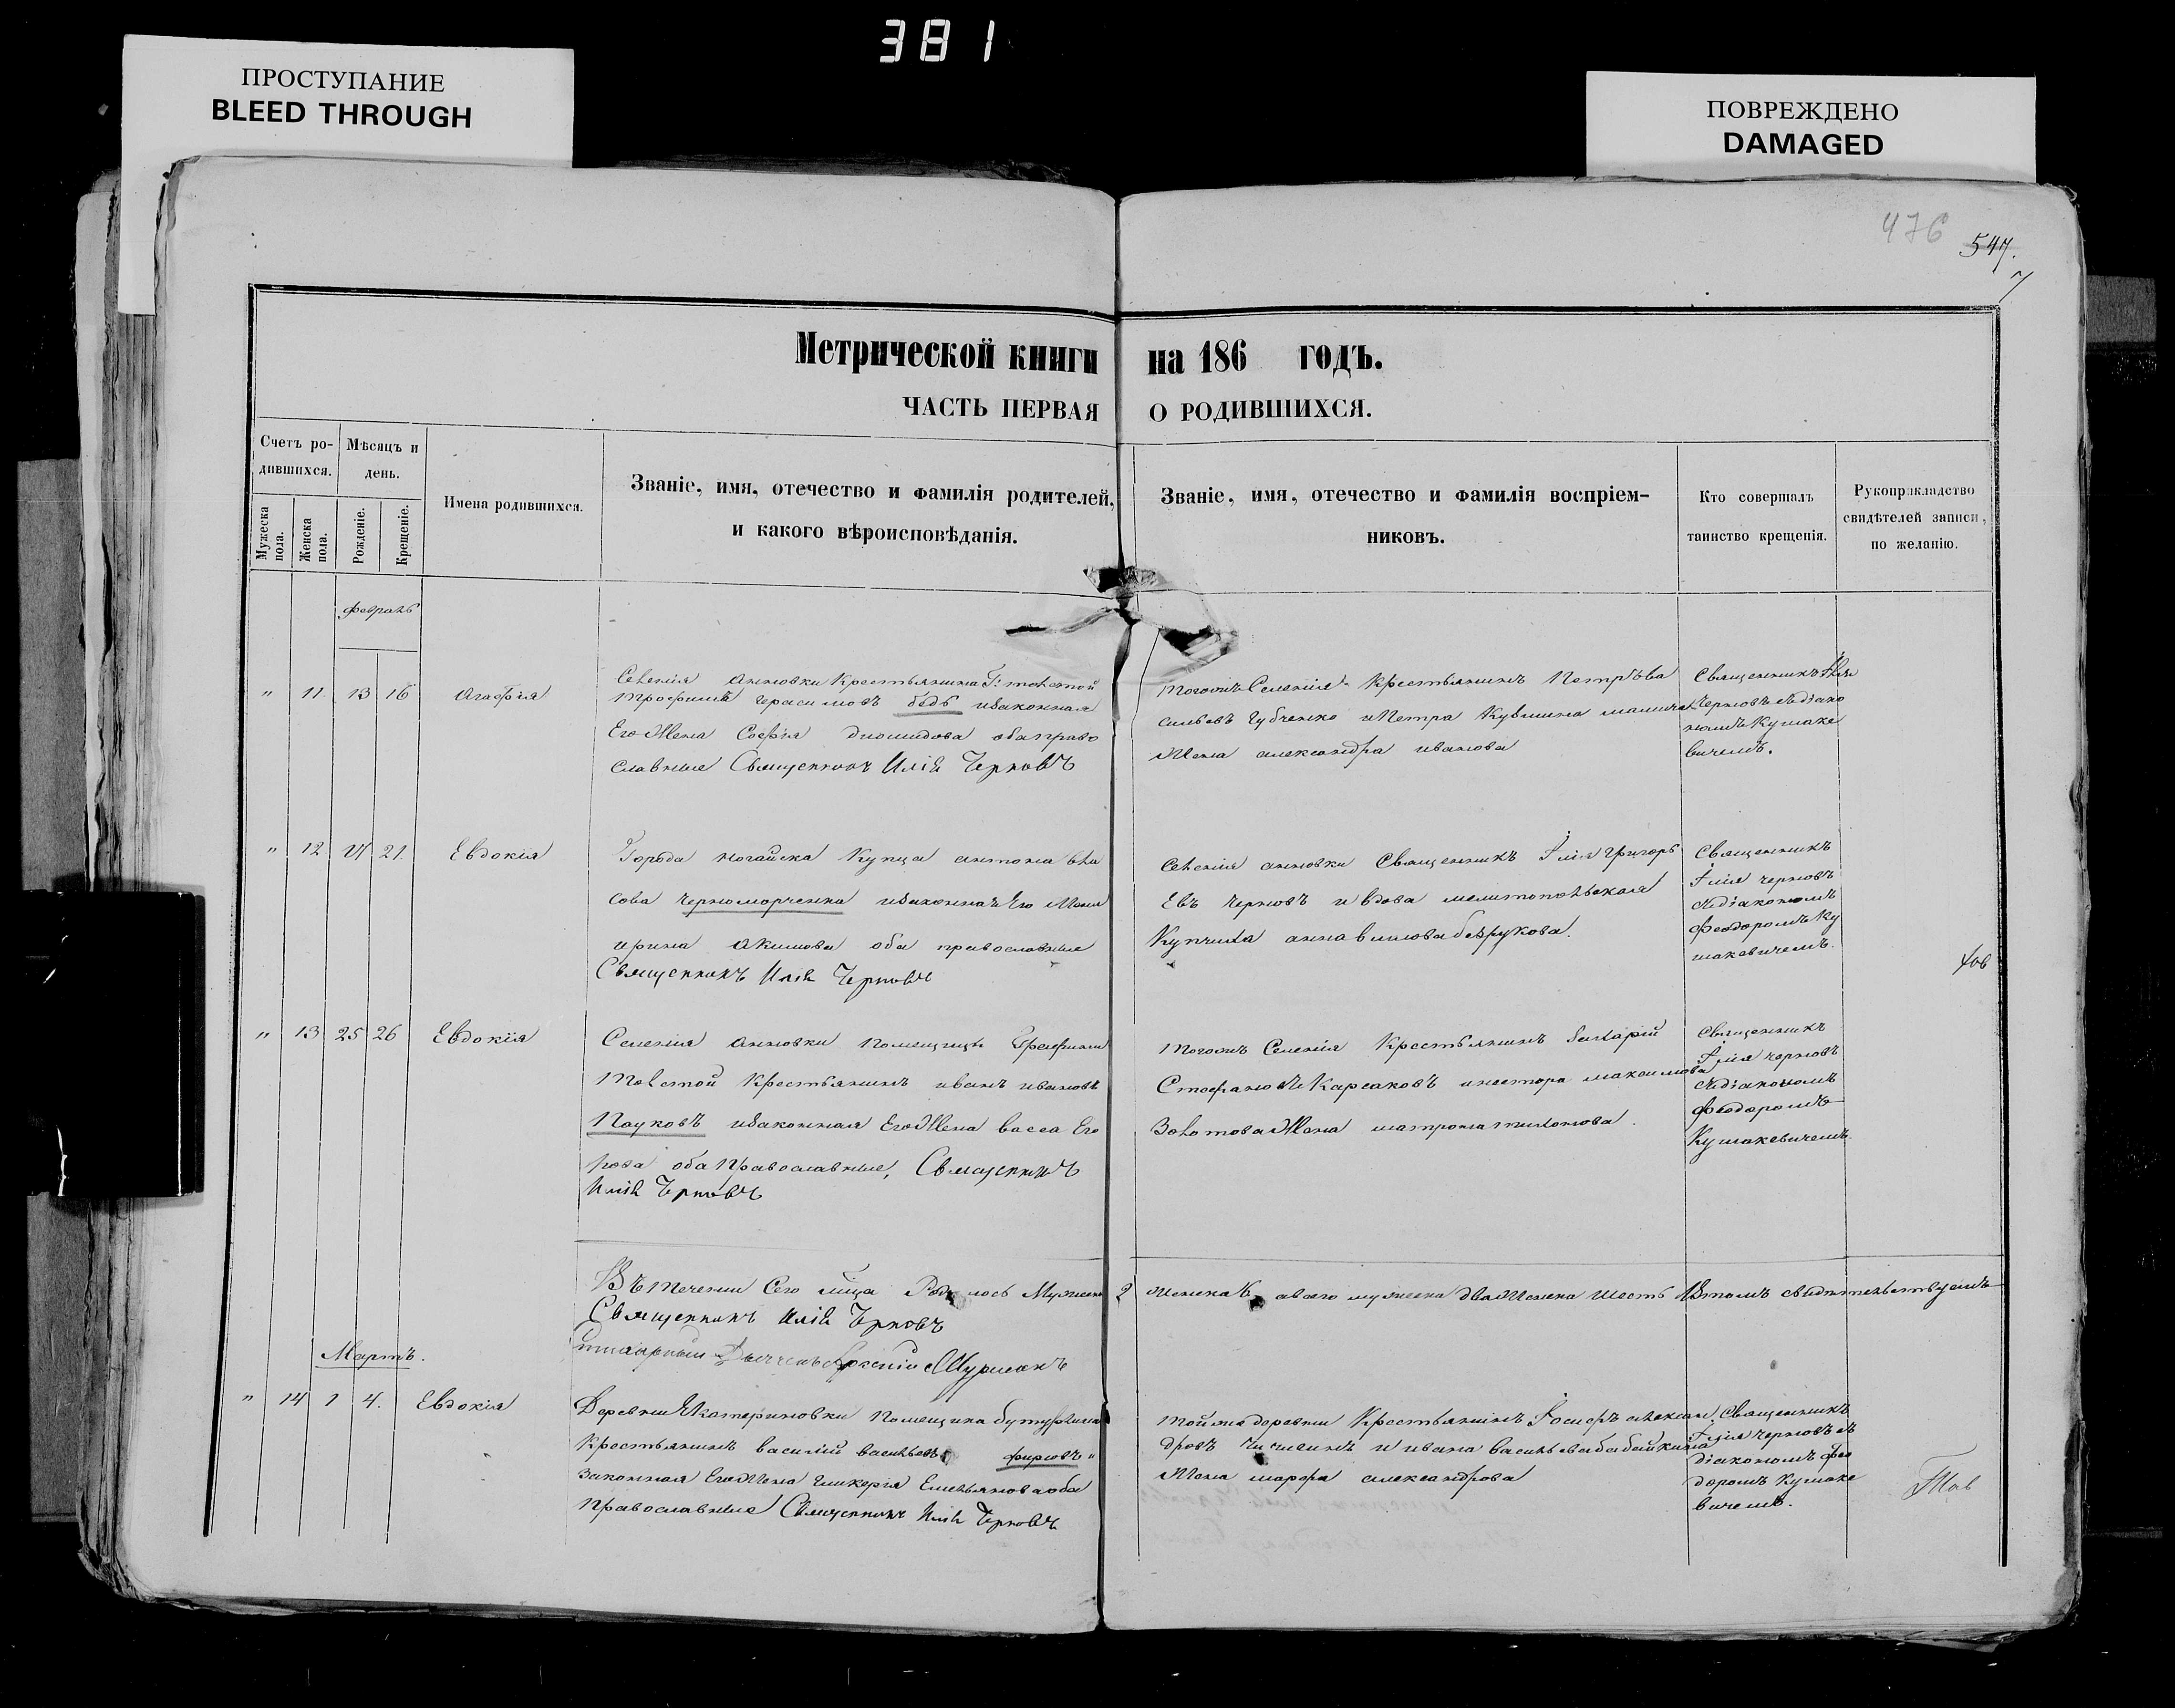 381
ПРОСТУПАНИЕ
BLEED THROUGH
ПОВРЕЖДЕНО
DAMAGED
476
547.
7
Метрической книги на 186 годъ.
ЧАСТЬ ПЕРВАЯ О РОДИВШИХСЯ.
Счетъ ро-
дившихся.
Мѣсяцъ и
день.
Мужеска
пола.
Женска
пола.
Рожденіе.
Крещеніе.
Имена родившихся.
Званіе, имя, отечество и фамилія родителей,
и какого вѣроисповѣданія.
Званіе, имя, отечество и фамилія воспріем-
никовъ.
Кто совершалъ
таинство крещенія.
Рукоприкладство
свидѣтелей записи,
по желанію.
февраль
" 11. 13 16 Агафія
Селенія Анновки Крестьянина Г: толстой
Трофимъ Герасимовъ бедь изаконная
Его Жена Софія Диомидова оба право
славные Священникъ Илія Черновъ
тогожъ Селенія крестьянинъ Петръ Ва
сильевъ Губченко и Петра
Жена александра иванова
Священникъ Илія
Черновъ съ діако
номъ Кушаке
вичемъ.
" 12 21. Евдокія
Города ногайска Купца антона вла
сова черноморченка изаконная Его Жена
ирина Акимова оба православные
Священникъ Илія Черновъ
Селенія анновки Священникъ Илія Григорь
Евъ Черновъ и вдова мелитопольская
Купчиха анна безрукова.
Священникъ
Илія черновъ
съ діакономъ
Феодоромъ Ку
шакевичемъ.
" 13 25 26 Евдокія
Селенія Анновки помещицы Графини
Толстой Крестьянинъ иванъ ивановъ
Пауковъ изаконная Его Жена васса Его
рова оба Православные, Священникъ
Илія Черновъ
Тогожъ Селенія Крестьянинъ
Стефановъ Карсаковъ инестора максимова
Золотова Жена матрона
Священникъ
Илія черновъ
съ діакономъ
Феодоромъ
Кушакевичемъ.
Въ течении Сего м͠ца Родилось Мужеска 2 женска 6, авсего мужеска два Женска шесть Втомъ свидѣтельствуемъ
Священникъ Илія Черновъ
Мартъ.
" 14 1 4. Евдокія
Деревни Екатериновки Помещика
Крестьянинъ василій васильевъ фирсовъ "
законная Его Жена Гликерія Емельянова оба
Православные Священникъ Илія Черновъ
тойжа деревни Крестьянинъ Іосифъ алексан
дровъ и ивана васильева
Жена марфа александрова
Священникъ
Илія черновъ съ
діакономъ фео
доромъ кушаке
вичемъ.